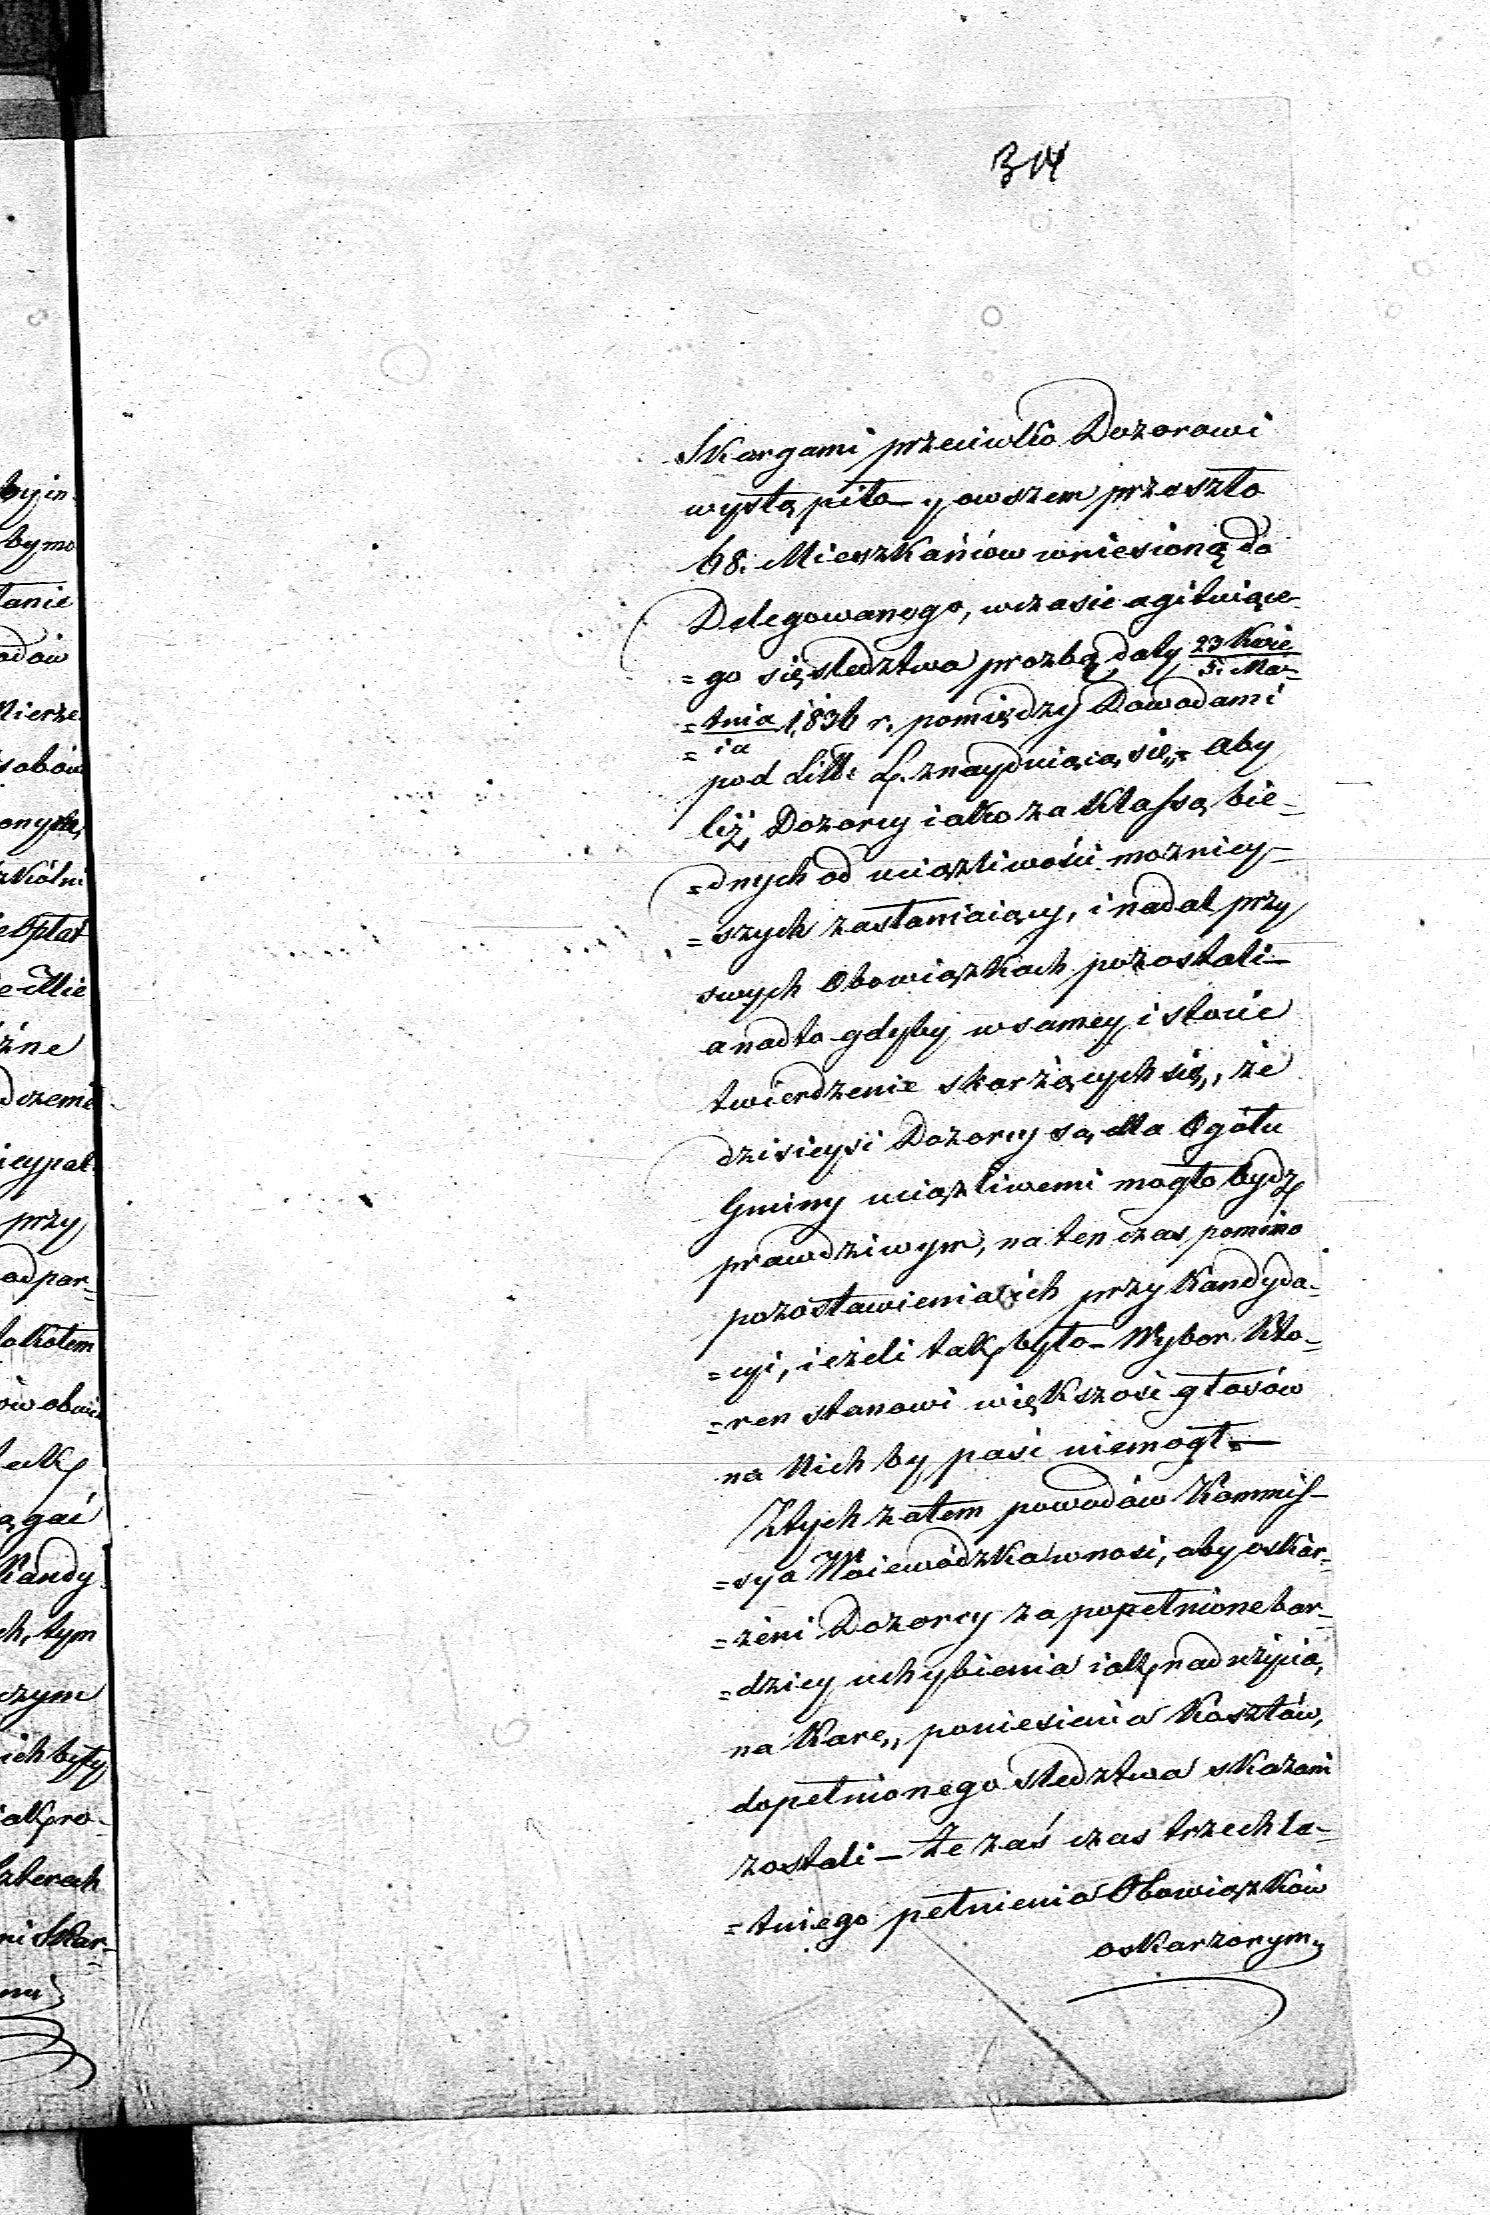 314
Skargami przeciwko Dozorowi
wystąpiło – y owszem przeszło
68. Mieszkańców wniesioną do
Delegowanego, w czasie agituiące-
=go się śledztwa prozbą daty 23 Kwie
5. Ma-
=tnia 1836 r. pomiędzy Dowodami
=ia
pod Litt: L. znayduiącą się „= aby
liż Dozorcy iako za Klassą bie-
=dnych od uciążliwości mozniey-
=szych zasłaniaiący, i nadal przy
swych Obowiązkach pozostali –
a nadto gdyby w samey istocie
twierdzenie skarżących się, że
dzisieysi Dozorcy są dla Ogółu
Gminy uciążliwemi mogło bydz
prawdziwym, na ten czas pomimo
pozostawienia ich przy Kandyda-
=cyi, ieżeli tak było – Wybor Kto-
=ren stanowi większość głosów
na Nich by paść niemogł. –
Z tych zatem powodów Kommis-
=sya Woiewódzka wnosi, aby oskar-
=żeni Dozorcy za popełnione bar-
=dziey uchybienia iak nadużycia,
na Karę, poniesienia Kosztów,
dopełnionego śledztwa skazani
zostali – że zaś czas trzechle-
=tniego pełnienia Obowiązków
oskarzonym
byin-
by mo
łanie
odów
Mierze
sobów
zkólni
e Mie
żne
dczeme
icypal.
przy
od par-
ów obwi
ągać
Kandy
ch, tym
czym
ich były
iak ro-
czterech
ni Skar-